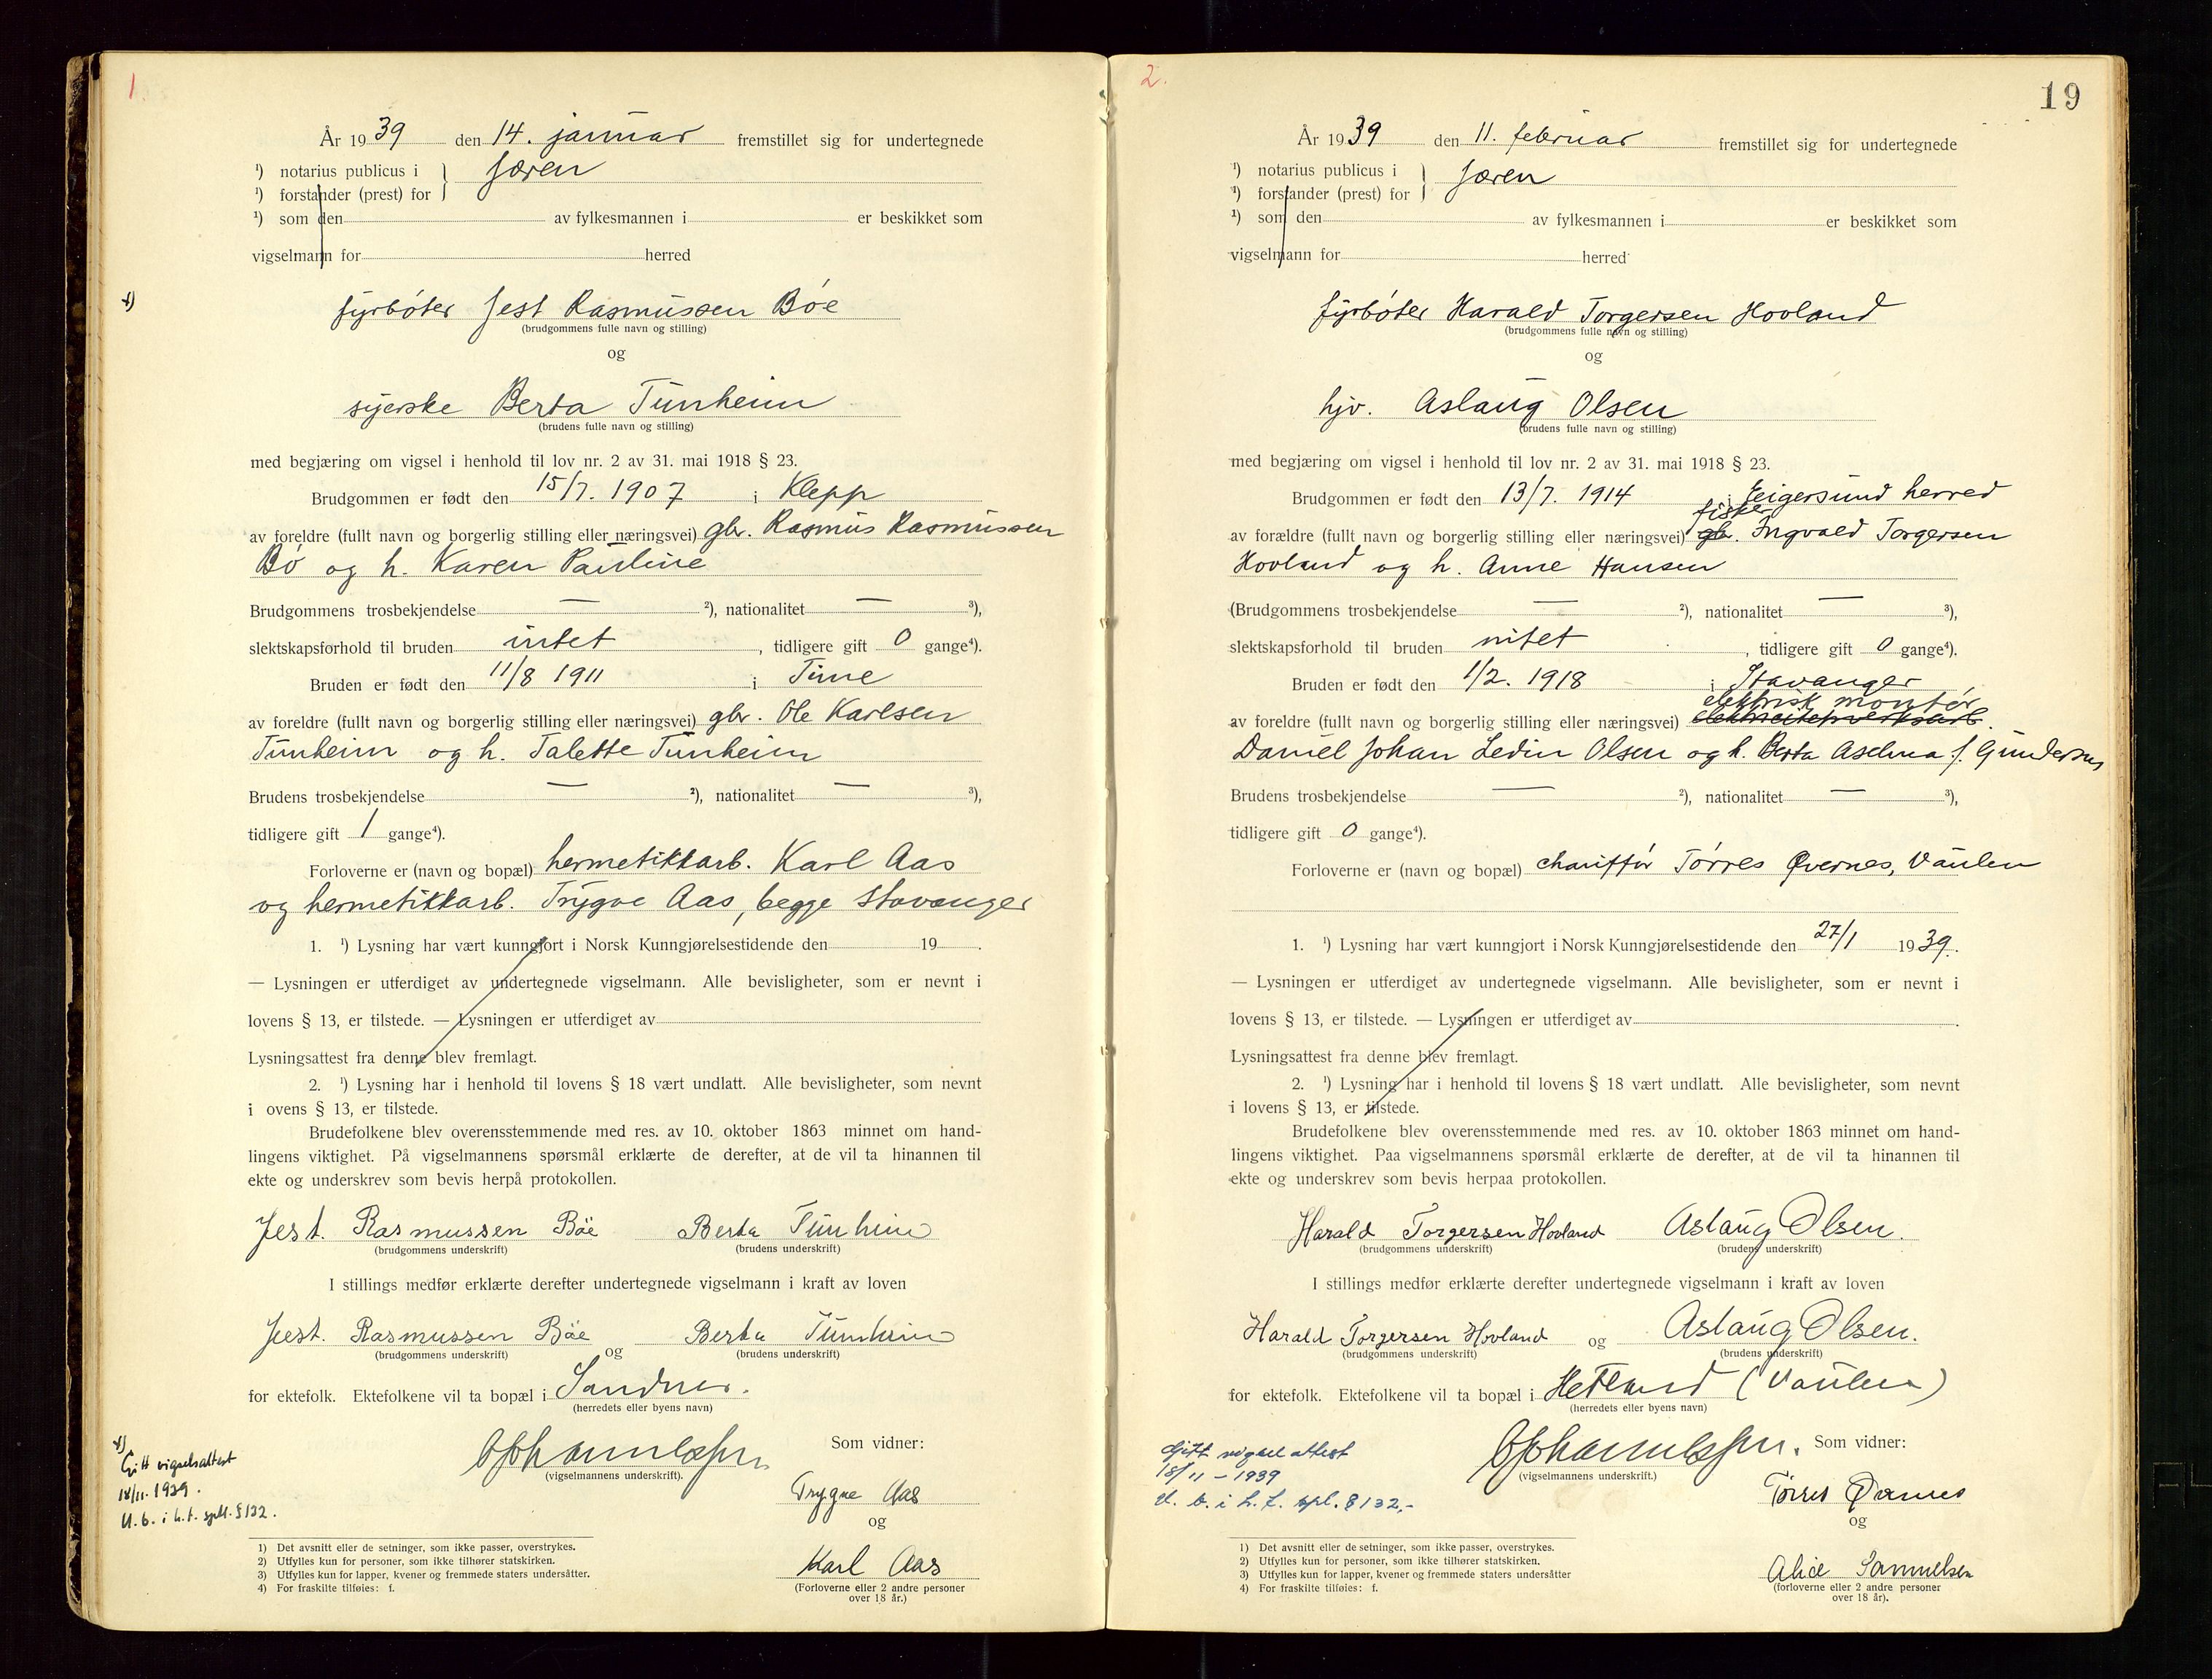 1.
År 1939 den 14. januar fremstillet sig for undertegnede
¹) notarius publicus i } Jæren
¹) forstander (prest) for
¹) som den av fylkesmannen i er beskikket som
vigselmann for herred
1)
fyrbøter Jest Rasmussen Bøe
(brudgommens fulle navn og stilling)
og
syerske Berta Tunheim
(brudens fulle navn og stilling)
med begjæring om vigsel i henhold til lov nr. 2 av 31. mai 1918 § 23.
Brudgommen er født den 15/7. 1907 i Klepp
av foreldre (fullt navn og borgerlig stilling eller næringsvei) gbr. Rasmus Rasmussen
Bø og h. Karen Pauline
Brudgommens trosbekjendelse — ²), nationalitet — ³),
slektskapsforhold til bruden intet, tidligere gift 0 gange⁴).
Bruden er født den 11/8 1911 i Time
av foreldre (fullt navn og borgerlig stilling eller næringsvei) gbr. Ole Karlsen
Tunheim og h. Talette Tunheim
Brudens trosbekjendelse — ²), nationalitet — ³),
tidligere gift 1 gange⁴).
Forloverne er (navn og bopæl) hermetikkarb. Karl Aas
og hermetikkarb. Trygve Aas, begge Stavanger
1. ¹) Lysning har vært kunngjort i Norsk Kunngjørelsestidende den 19 .
— Lysningen er utferdiget av undertegnede vigselmann. Alle bevisligheter, som er nevnt i
lovens § 13, er tilstede. — Lysningen er utferdiget av
Lysningsattest fra denne blev fremlagt.
2. ¹) Lysning har i henhold til lovens § 18 vært undlatt. Alle bevisligheter, som nevnt
i ovens § 13, er tilstede.
Brudefolkene blev overensstemmende med res. av 10. oktober 1863 minnet om hand-
lingens viktighet. På vigselmannens spørsmål erklærte de derefter, at de vil ta hinannen til
ekte og underskrev som bevis herpå protokollen.
Jest. Rasmussen Bøe Berta Tunheim
(brudgommens underskrift) (brudens underskrift)
I stillings medfør erklærte derefter undertegnede vigselmann i kraft av loven
Jest. Rasmussen Bøe og Berta Tunheim
(brudgommens underskrift) (brudens underskrift)
for ektefolk. Ektefolkene vil ta bopæl i Sandnes.
(herredets eller byens navn)
Som vidner:
(vigselmannens underskrift).
1)
Gitt vigselsattest
18/11. 1939.
U. b. i h. t. spll. § 132.
Trygve Aas
og
Karl Aas
(Forloverne eller 2 andre personer
over 18 år.)
1) Det avsnitt eller de setninger, som ikke passer, overstrykes.
2) Utfylles kun for personer, som ikke tilhører statskirken.
3) Utfylles kun for lapper, kvener og fremmede staters undersåtter.
4) For fraskilte tilføies: f.
2.
19
År 1939 den 11. februar fremstillet sig for undertegnede
¹) notarius publicus i } Jæren
¹) forstander (prest) for
¹) som den av fylkesmannen i er beskikket som
vigselmann for herred
fyrbøter Harald Torgersen Hovland
(brudgommens fulle navn og stilling)
og
hjv. Aslaug Olsen
(brudens fulle navn og stilling)
med begjæring om vigsel i henhold til lov nr. 2 av 31. mai 1918 § 23.
Brudgommen er født den 13/7. 1914 i Eigersund herred
fisker
av forældre (fullt navn og borgerlig stilling eller næringsvei) gbr. Ingvald Torgersen
Hovland og h. Anne Hansen
(Brudgommens trosbekjendelse — ²), nationalitet — ³),
slektskapsforhold til bruden intet, tidligere gift 0 gange⁴).
Bruden er født den 1/2. 1918 i Stavanger
elektrisk montør
av foreldre (fullt navn og borgerlig stilling eller næringsvei) elektricitetsverksarb.
Daniel Johan Ledin Olsen og h. Berta Aselma f. Gundersen
Brudens trosbekjendelse — ²), nationalitet — ³),
tidligere gift 0 gange⁴).
Forloverne er (navn og bopæl) chauffør Tørres Øvernes, Vaulen
1. ¹) Lysning har vært kunngjort i Norsk Kunngjørelsestidende den 27/1 1939.
— Lysningen er utferdiget av undertegnede vigselmann. Alle bevisligheter, som er nevnt i
lovens § 13, er tilstede. — Lysningen er utferdiget av .
Lysningsattest fra denne blev fremlagt.
2. ¹) Lysning har i henhold til lovens § 18 vært undlatt. Alle bevisligheter, som nevnt
i lovens § 13, er tilstede.
Brudefolkene blev overensstemmende med res. av 10. oktober 1863 minnet om hand-
lingens viktighet. Paa vigselmannens spørsmål erklærte de derefter, at de vil ta hinannen til
ekte og underskrev som bevis herpaa protokollen.
Harald Torgersen Hovland Aslaug Olsen.
(brudgommens underskrift) (brudens underskrift)
I stillings medfør erklærte derefter undertegnede vigselmann i kraft av loven
Harald Torgersen Hovland og Aslaug Olsen.
(brudgommens underskrift) (brudens underskrift)
for ektefolk. Ektefolkene vil ta bopæl i Hetland (Vaulen)
(herredets eller byens navn)
Som vidner:
(vigselmannens underskrift.)
Gitt vigselattest
18/11 – 1939
U. b. i h. t. spl. § 132,-
Tørres Øvernes
og
Alice Samuelsen
(forloverne eller 2 andre personer
over 18 år).
1) Det avsnitt eller de setninger, som ikke passer, overstrykes.
2) Utfylles kun for personer, som ikke tilhører statskirken.
3) Utfylles kun for lapper, kvener og fremmede staters undersåtter
4) For fraskilte tilføies: f.